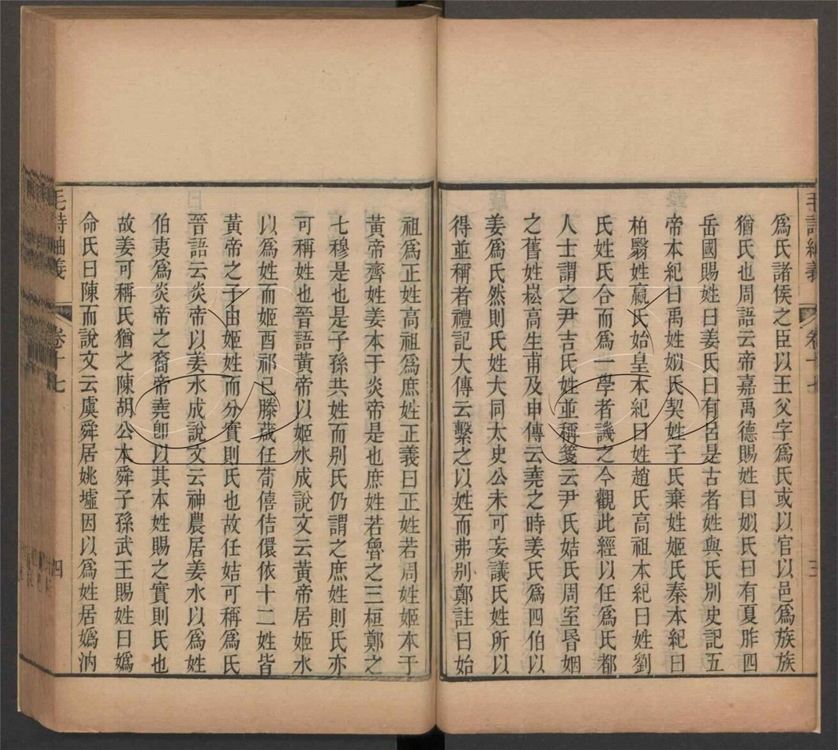 爲氏諸侯之臣以王父字爲氏或以官以邑爲族族
猶氏也周語云帝嘉禹德賜姓曰姒氏曰有夏胙四
岳國賜姓曰姜氏曰有呂是古者姓與氏別史記五
帝本紀曰禹姓姒氏契姓子氏棄姓姬氏秦本紀曰
柏翳姓嬴氏始皇本紀曰姓趙氏高祖本紀曰姓劉
氏姓氏合而爲一學者譏之今觀此經以任爲氏都
人士謂之尹吉氏姓並稱箋云尹氏姞氏周室昬姻
之舊姓崧高生甫及申傳云堯之時姜氏爲四伯以
姜爲氏然則氏姓大同太史公未可妄議氏姓所以
得並稱者禮記大傳云繫之以姓而弗别鄭註曰始
毛詩紬義
卷十七
三
祖爲正姓高祖爲庶姓正義曰正姓若周姓姬本于
黃帝齊姓姜本于炎帝是也庶姓若魯之三桓鄭之
七穆是也是子孫共姓而别氏仍謂之庶姓則氏亦
可稱姓也晉語黃帝以姬水成說文云黃帝居姬水
以爲姓而姬酉祁己滕葴任荀僖佶儇依十二姓皆
黃帝之子由姬姓而分實則氏也故任姞可稱爲氏
晉語云炎帝以姜水成說文云神農居姜水以爲姓
伯夷爲炎帝之裔帝堯卽以其本姓賜之實則氏也
故姜可稱氏猶之陳胡公本舜子孫武王賜姓曰嬀
命氏曰陳而說文云虞舜居姚墟因以爲姓居嬀汭
毛詩紬義
卷十七
四